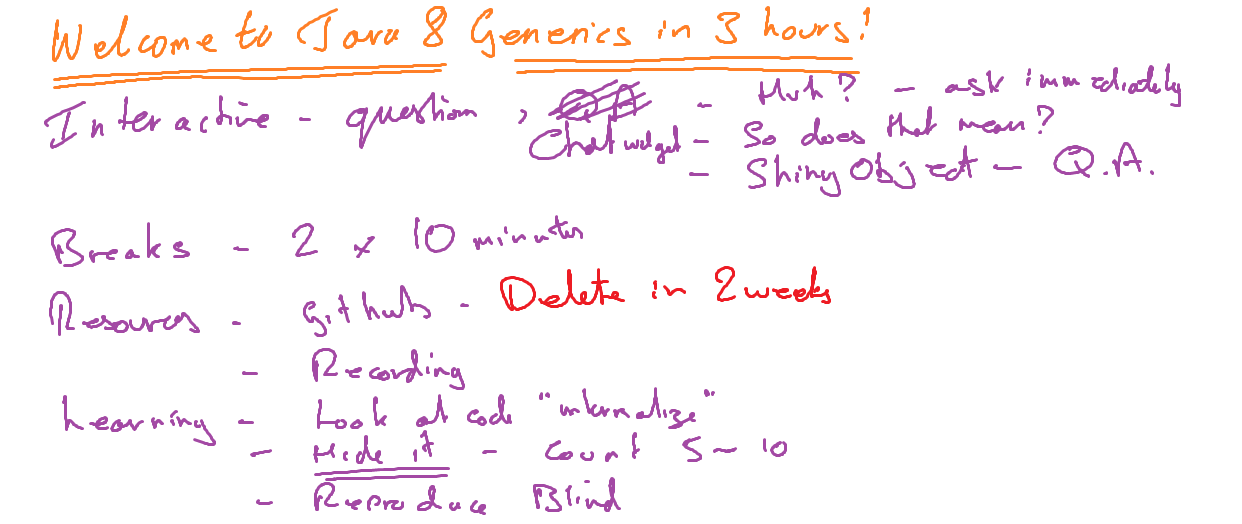 Welcome to Java 8 Generics in 3 hours!
Interactive - question, - Huh? - ask immediately
Chat widget - So does that mean?
- Shiny Object - Q.A.
Breaks - 2 x 10 minutes
Resources - github - Delete in 2 weeks
- Recording
Learning - Look at code "internalize"
- Hide it - count 5~10
- Reproduce Blind